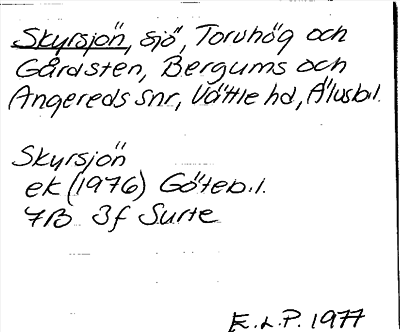 Skyrsjön, sjö, Toruhög och
Gårdsten, Bergums och
Angereds snr, Vättle hd, Älvsb.l.
Skyrsjön
ek (1976) Göteb.l.
7B 3f Surte
E.L.P. 1977